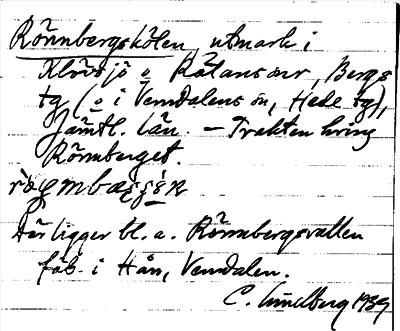 Rönnbergskölen, utmark i
Klövsjö o Rätans snr, Bergs
tg (o i Vemdalens sn, Hede tg),
Jämtl. län. – Trakten kring
Rönnberget.
Där ligger bl. a. Rönnbergsvallen
fäb. i Hån, Vemdalen.
C. Lindberg 1939